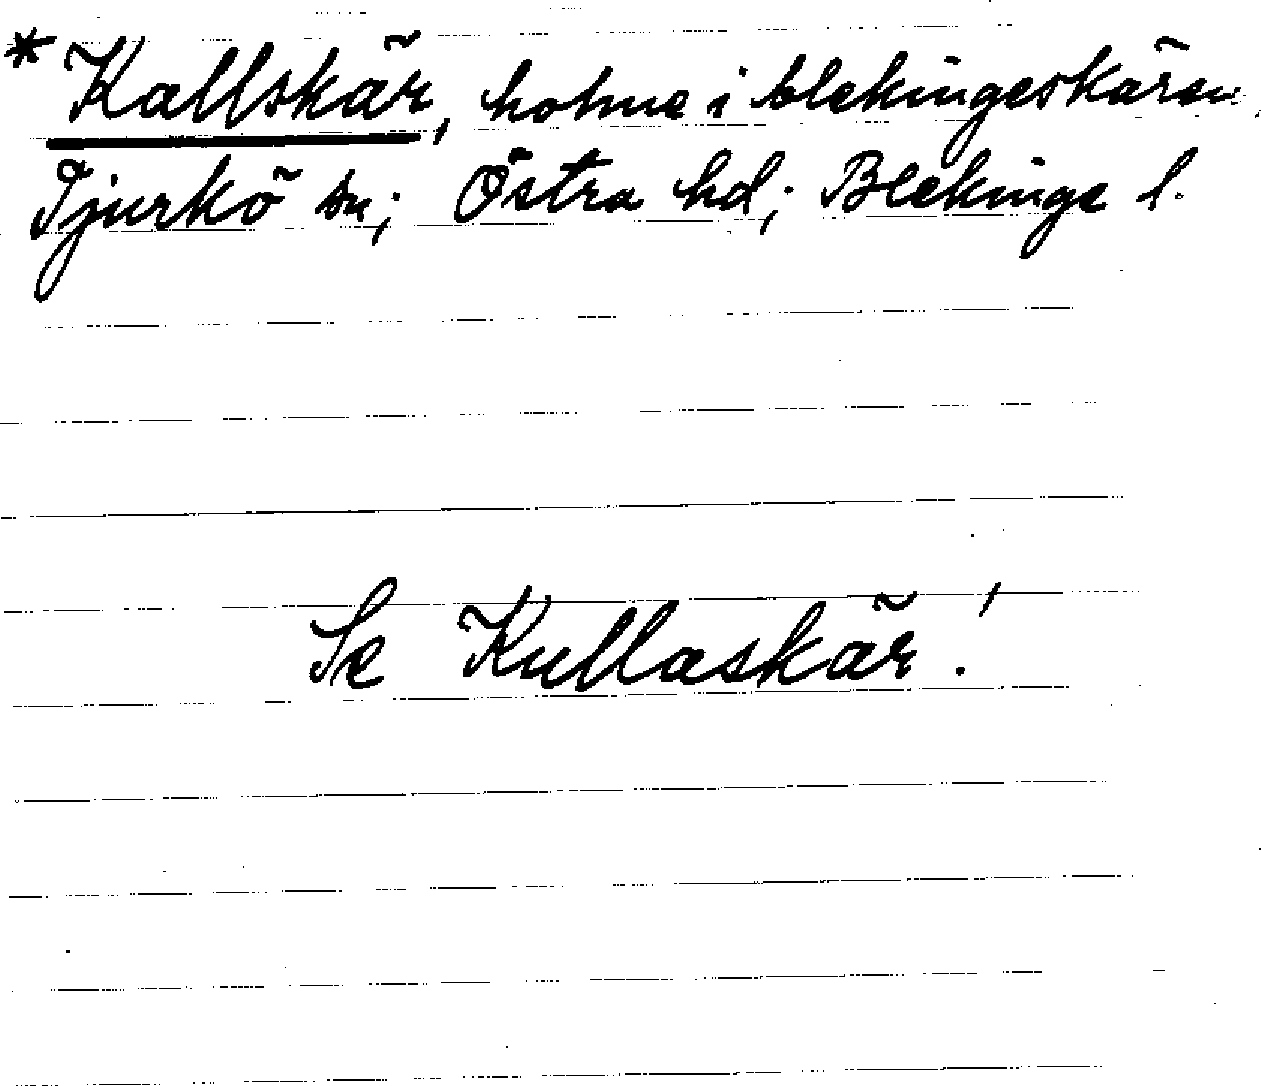 * Kallskär, holme i blekingeskären,
Tjurkö sn; Östra hd; Blekinge l.
Se Kullaskär!